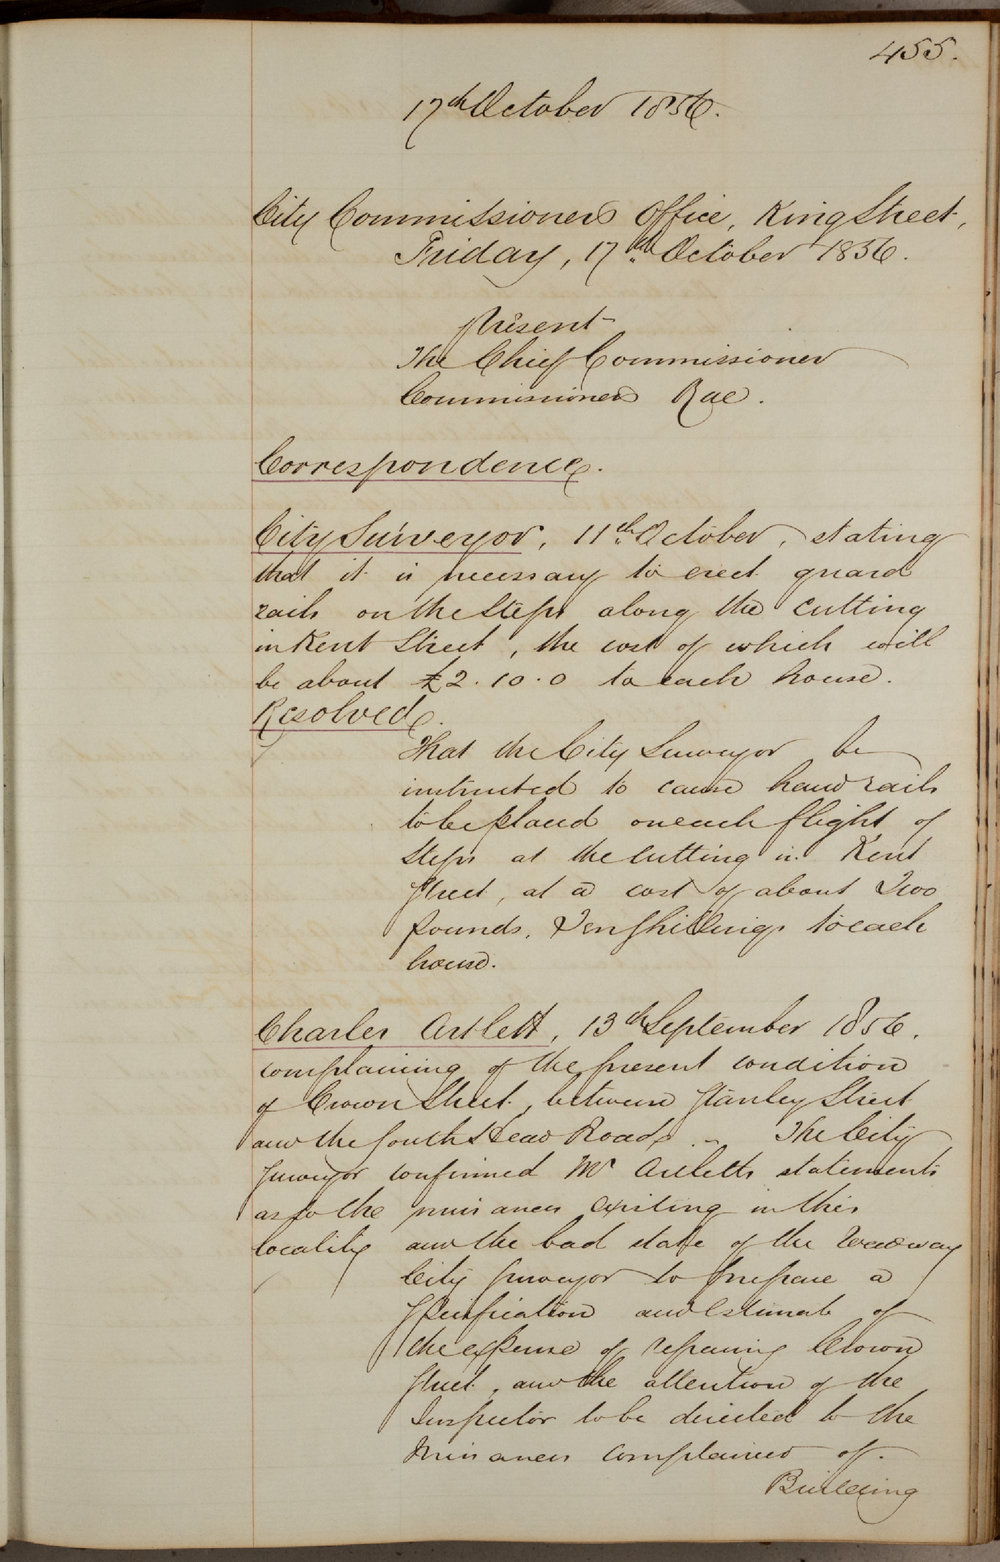 455.
17th October 1856.
City Commissioners Office, King Street,
Friday, 17th October 1856.
Present
The Chief Commissioner
Commissioner Rae.
Correspondence.
City Surveyor, 11th October, stating
that it is necessary to erect guard
rails on the Steps along the cutting
in Kent Street, the cost of which will
be about £2.10.0 to each house.
Resolved.
That the City Surveyor be
instructed to cause hand rails
to be placed on each flight of
Steps at the cutting in Kent
Street, at a cost of about Two
pounds, Ten shillings to each
house.
Charles Artlett, 13th September 1856.
complaining of the present condition
of Crown Street, between Stanley Street
and the South Head Road. The City
Surveyor confirmed Mr Artletts statements
as to the nuisances existing in this
locality and the bad state of the roadway
City Surveyor to prepare a
specification and Estimate of
the expense of repairing Crown
Street, and the attention of the
Inspector to be directed to the
Nuisances complained of.
Building